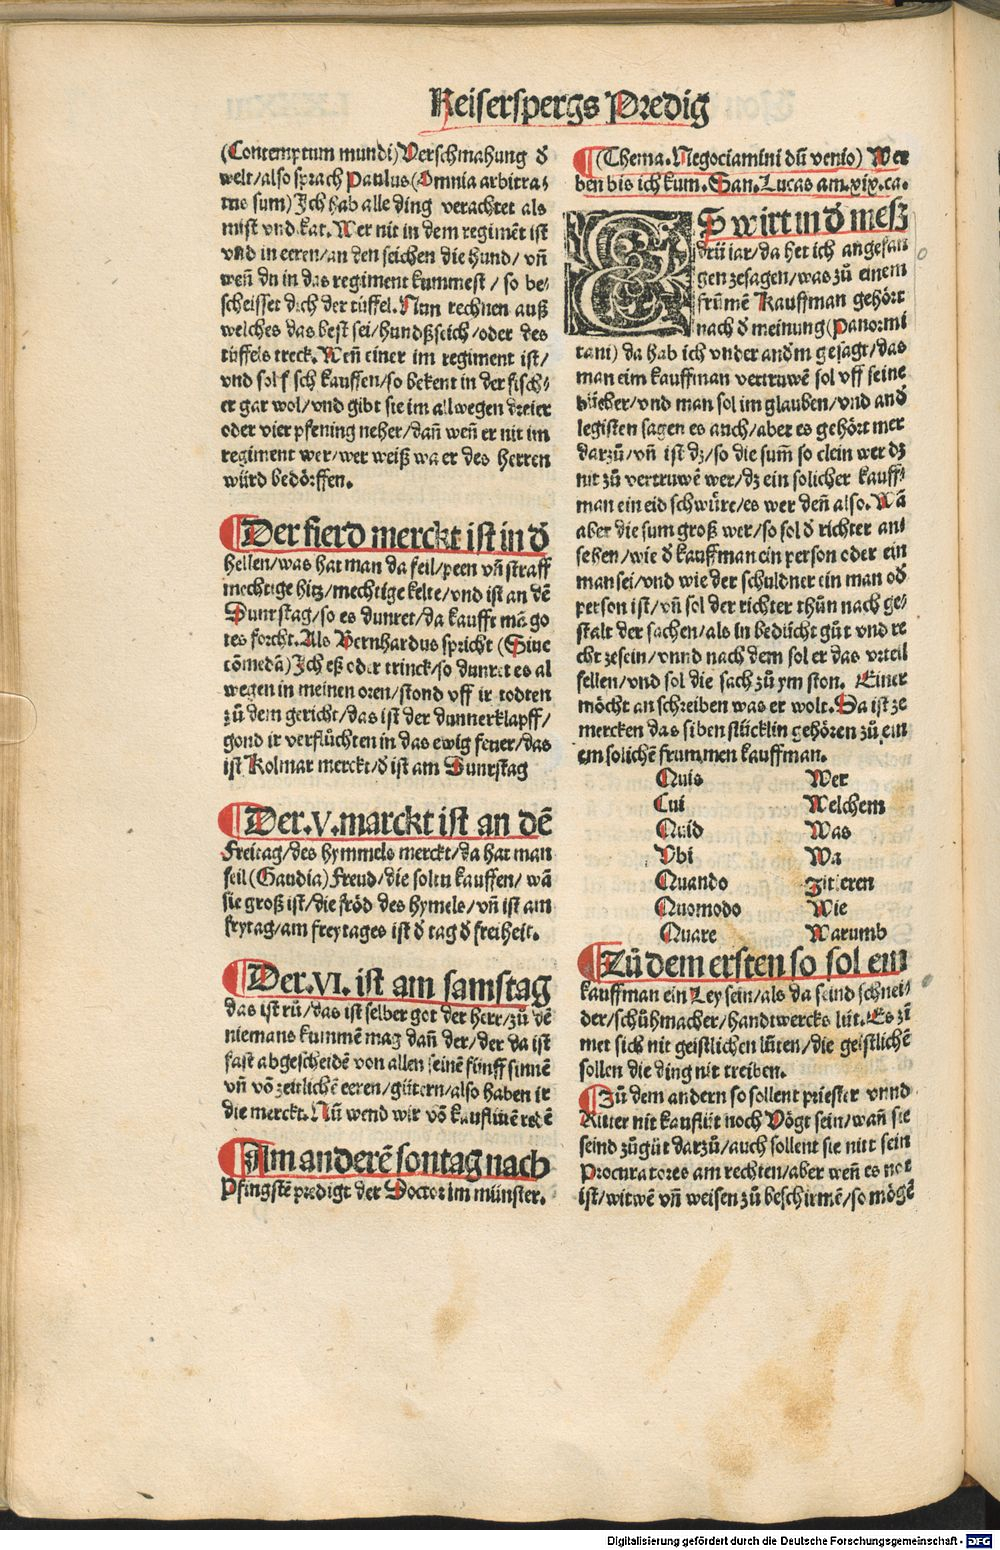 Keiserspergs Predig
(Contemptum mundi) Verschmahung d̕
welt/also sprach Paulus(Omnia arbitra⸗
tus sum)Ich hab alle ding verachtet als
mist vnd kat. Wer nit in dem regimēt ist
vnd in eeren/an den seichen die hund/vñ
weñ du in das regiment kummest/so be⸗
scheisset dich der tüffel. Nun rechnen auß
welches das best sei/hundßseich/oder des
tüffels treck. Weñ einer im regiment ist/
vnd sol f sch kauffen/so bekent in der fisch⸗
er gar wol/vnd gibt sie im allwegen dreier
oder vier pfening neher/dañ weñ er nit im
regiment wer/wer weiß wa er des herren
würd bedörffen.
¶Der fierd merckt ist in d̕
hellen/was hat man da feil/peen vñ straff
mechtige hitz/mechtige kelte/vnd ist an dē
Dunrstag/so es dunret/da kaufft mā go
tes forcht. Als Bernhardus spricht (Siue
cōmedā)Ich eß oder trinck/so dunret es al
wegen in meinen oren/stond vff ir todten
zů dem gericht/das ist der dunnerklapff/
gond ir verflůchten in das ewig feuer/das
ist Kolmar merckt/d̕ ist am Dunrstag
¶Der.V.marckt ist an dē
Freitag/des hymmels merckt/da hat man
feil(Gaudia)Freud/die soltu kauffen/wā
sie groß ist/die fröd des hymels/vñ ist am
frytag/am freytages ist d̕ tag d̕ freiheit.
¶Der.VI.ist am samstag
das ist rů/das ist selber got der herr/zů dē
niemans kummē mag dañ der/der da ist
fast abgescheidē von allen seinē fünff sinnē
vñ vō zeitlichē eeren/gütern/also haben ir
die merckt. Nū wend wir vō kauflutē redē
¶Am anderē sontag nach
Pfingstē predigt der Doctor im münster.
¶(Thema. Negociamini dū venio) Wer
ben bis ich kum. San. Lucas am.xix.ca.
ES wirt in d̕ meß
drü iar/da het ich angefan
gen zesagen/was zů einem
frūmē Kauffman gehört
nach d̕ meinung(Panormi
tani) da hab ich vnder and̕m gesagt/das
man eim kauffman vertruwē sol vff seine
bücher/vnd man sol im glauben/vnd and̕
legisten sagen es auch/aber es gehört mer
darzů/vñ ist dz/so die sum̄ so clein wer dz
nit zů vertruwē wer/dz ein solicher kauff⸗
man ein eid schwüre/es wer deñ also. Wā
aber die sum groß wer/so sol d̕ richter an⸗
sehen/wie d̕ kauffman ein person oder ein
man sei/vnd wie der schuldner ein man od̕
person ist/vñ sol der richter thůn nach ge⸗
stalt der sachen/als in bedücht gůt vnd re
cht zesein/vnnd nach dem sol er das vrteil
fellen/vnd sol die sach zů ym ston. Einer
möcht an schreiben was er wolt. Da ist ze
mercken das siben stücklin gehören zů ein
em solichē frummen kauffman.
Quis Wer
Cui Welchem
Quid Was
Vbi Wa
Quando Zitteren
Quomodo Wie
Quare Warumb
¶Zů dem ersten so sol ein
kauffman ein Ley sein/als da seind schnei⸗
der/schůhmacher/handtwercks lüt. Es zī
met sich nit geistlichen lüten/die geistlichē
sollen die ding nit treiben.
¶Zů dem andern so sollent priester vnnd
Ritter nit kauflüt noch Vögt sein/wañ sie
seind zůgůt darzů/auch sollent sie nitt sein
Procuratores am rechten/aber weñ es not
ist/witwē vñ weisen zů beschirmē/so mögē
Digitalisierung gefördert durch die Deutsche Forschungsgemeinschaft - DFG